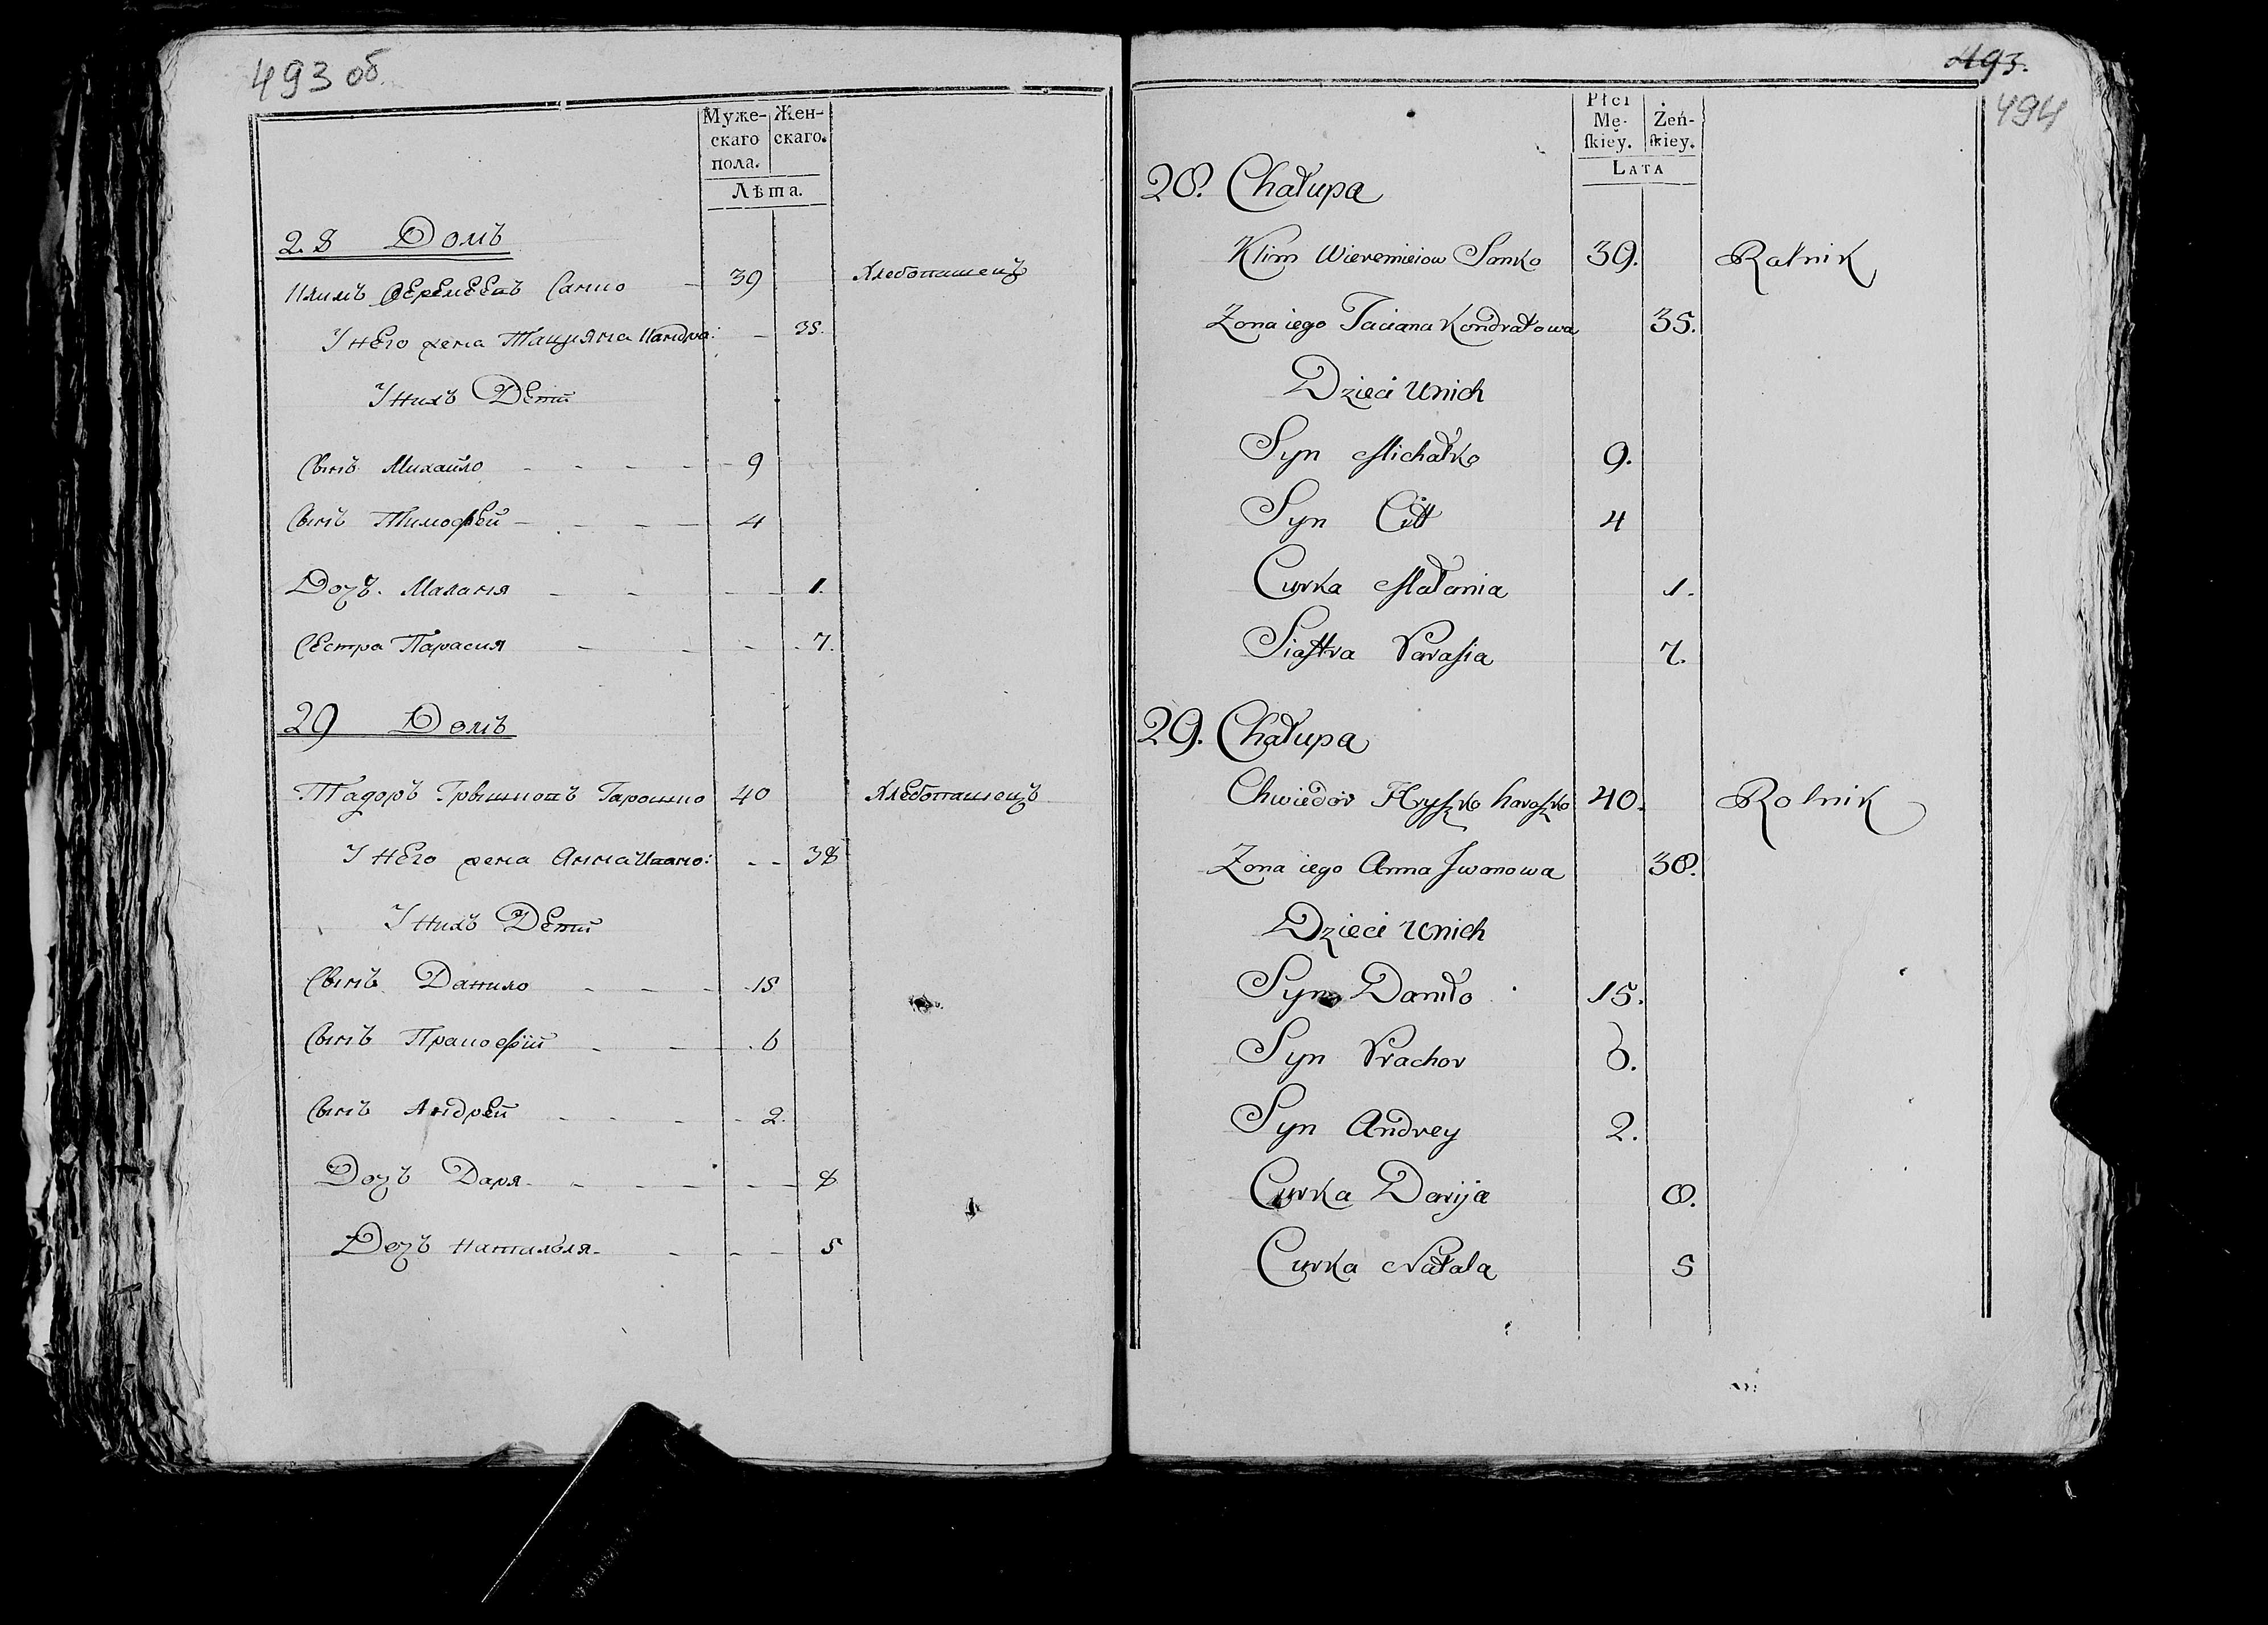 493 об.
Муже-
скаго
пола.
Жен-
скаго.
Лѣта.
28 Домъ
Климъ Веремеевъ Санко - 39 Хлебопашецъ
У Него жена Тацияна Кандра: - 35.
У Нихъ Дети
Сынъ Михайло - - - - 9
Сынъ Тимофей - - - - 4
Дочъ. Малания - - - - 1.
Сестра Парасия - - - - 7.
29 Домъ
Тадоръ Грышковъ Гарошко 40 Хлебопашецъ
У Него жена Анна Ивано: - - 38
У Нихъ Дети
Сынъ Данило - - - 15
Сынъ Пракофий - - . 6
Сынъ Андрей - - - - 2.
Дочъ Даря - - - - - 8
Дочъ Наталья - - - 5
493.
494
Płci
Mę-
ſkiey.
Żeń-
ſkiey.
LATA
28. Chałupa
Klim Wieremieiow Sanko 39. Rolnik
Zona iego Taciana Kondratowa 35.
Dzieci Unich
Syn Michałko 9.
Syn Cit 4
Curka Małania 1.
Siaſtra Paraſia 7.
29. Chałupa
Chwiedór Hryſzko haraſzko 40. Rolnik
Zona iego Anna Jwanowa 38.
Dzieci Unich
Syn Daniło 15.
Syn Prachor 6.
Syn Andrey 2.
Curka Darija 8.
Curka Natala 5